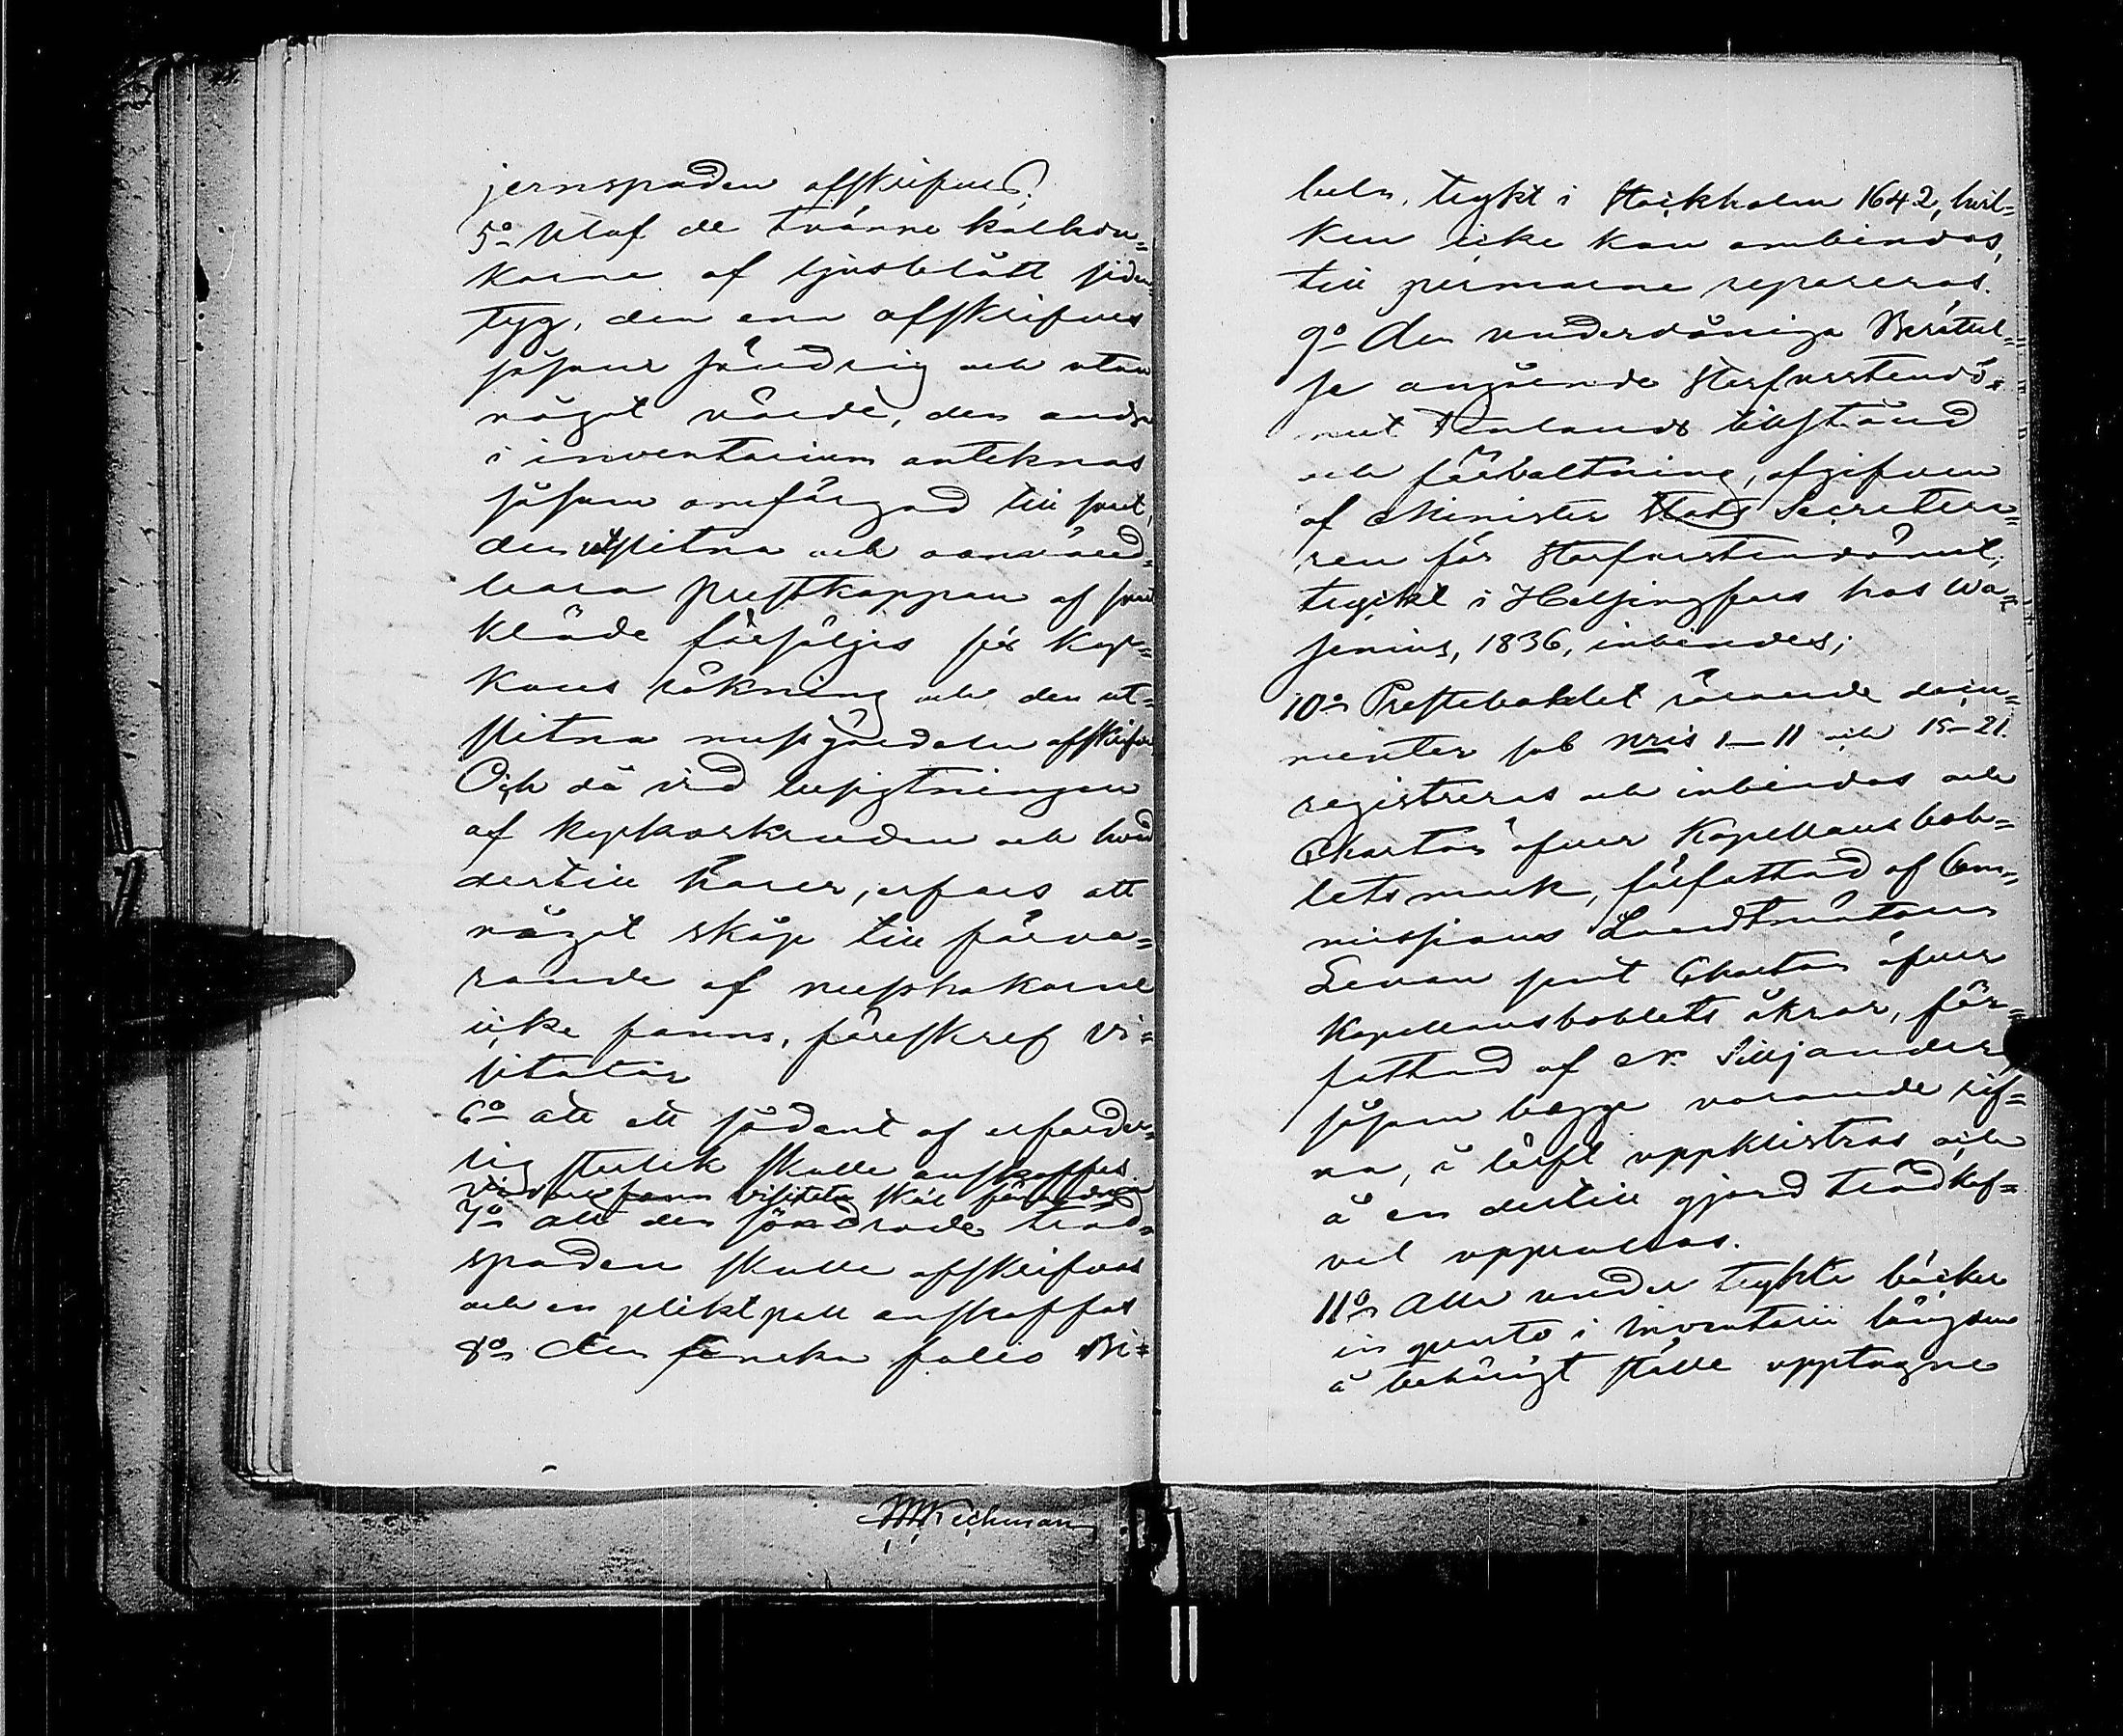 jernspaden afskrifves.
5o Utaf de tvänne kalkdu=
karne af ljusblått siden=
tyg, den ena afskrifves
såsom söndrig och utan
något värde, den andra
i inventarium anteknas
såsom omfärgad till svart,
den utslitna och oanvänd=
bara Prestkappan af svart
kläde försäljes för kyr=
kans räkning och den ut=
slitna messgördeln afskrifves
Och då vid besigtningen
af kyrkoskruden och hvad
dertill hörer, erfors att
något skåp till förva=
rande af messhakarne
icke fanns, föreskref Vi=
sitator
6o att ett sådant af erforder=
lig storlek skulle anskaffas
vidare fann visitator skäl förordna
7o att den söndrade träd=
spaden skulle afskrifvas
och en pliktpall anskaffas
8o den finska folio Bi=
M Reichman
beln, trykt i Stockholm 1642, hvil=
ken icke kan ombindas,
till permarne repareras.
9o Den underdåniga Berättel=
se angående Storfurstendö=
met Finlands tillstånd
och förvaltning, afgifven
af Minister Stats Secretera=
ren för Storfurstendömet,
tryckt i Helsingfors hos Wa=
senius, 1836, inbindes;
10o Prestebohlet rörande docu=
menter sub nris 1–11 och 15–21.
registreras och inbindas och
Chartan öfver Kapellansboh=
lets mark, författad af Com=
missions Landtmätaren
Levan samt Chartan öfver
Kapellansbohlets åkrar, för=
fattad af N. Silljander,
såsom begge varande rif=
na, å lärft uppklistras och
å en dertill gjord trädkaf=
vel upprullas.
11o Alla under trykta böcker
in quarto i Inventarii längden
å behörigt ställe upptagne